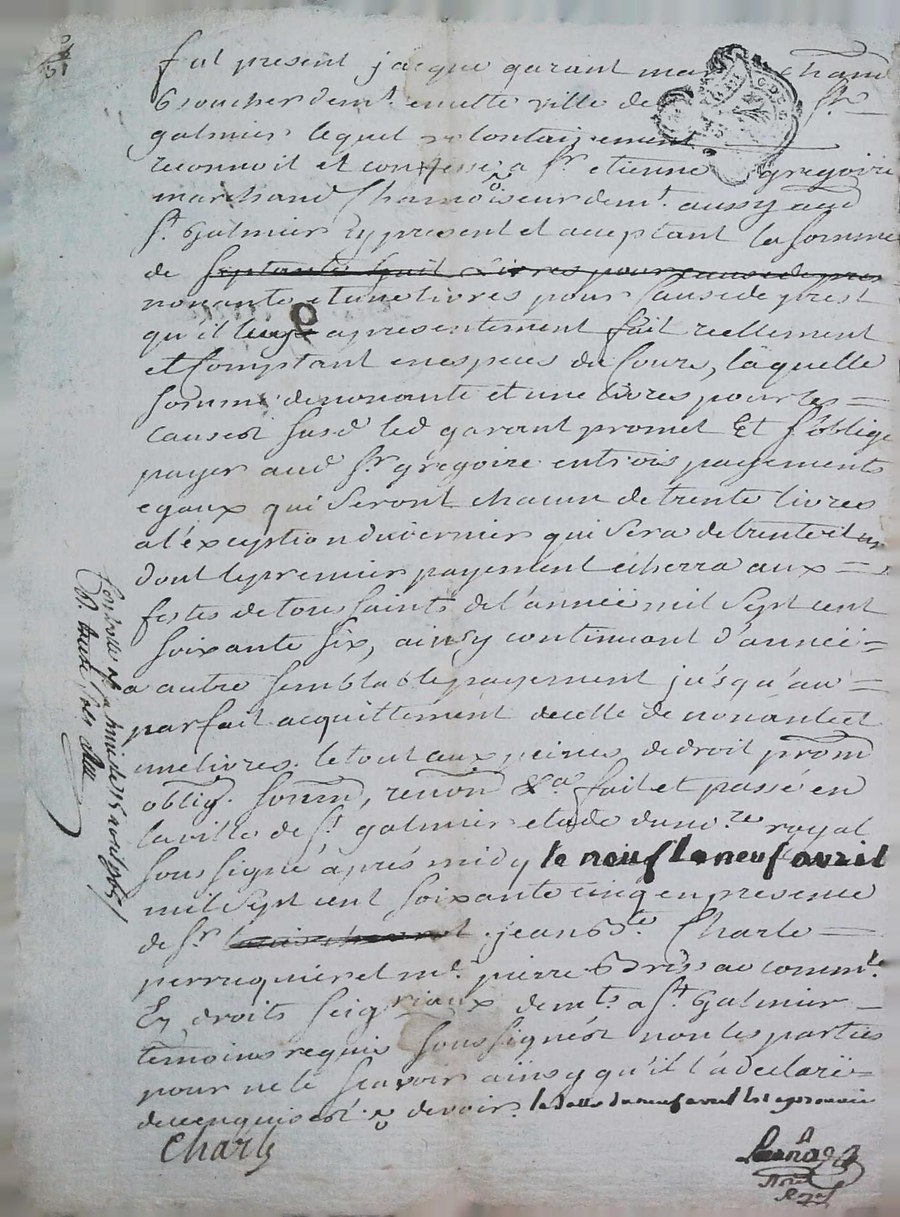 51
fut present jacque garant marchand
boucher demt. en cette ville de St.
galmier lequel volontairement
reconnoit et confesse a Sr. etienne gregoire
marchand Chamoiseur demt. aussy aud
St. Galmier Cy present et acceptant la somme
de septante huit livres pour cause de pres
nonante et une livres pour Cause de prest
qu'il luy a presentement fait reellement
et Comptant en especes du Cours, laquelle
somme de nonante et une livres pour les =
causes susd led garant promet Et s'oblige
payer aud Sr. gregoire en trois payements
egaux qui seront chacun de trente livres
a l'exception du dernier qui sera de trente et un
dont le premier payement écherra aux =
festes de tous saints de l'année mil sept cent
soixante six, ainsy continuant d'année =
a autre semblable payement jusqu'au =
parfait acquittement de celle de nonante et
une livres. le tout aux peines de droit prom
oblig. soum, renon &a. fait et passé en
la ville de St. galmier etude du nore. royal
soussigné après midy le neuf le neuf avril
mil sept cent soixante cinq en presence
de Sr. jean Bte. Charle =
perruquier et me. pierre Brissac commre.
En droits seigriaux demts. a St. Galmier
temoins requis soussignés non les parties
pour ne le scavoir ainsy qu'il l'a declaré =
de ce enquis et de voir.
Charle
Nore
Royal
Controllé a St. le 15 avril 1765